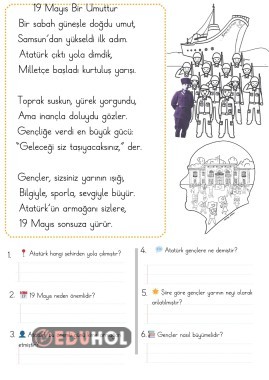 19 Mayıs Bir Umuttur
Bir sabah güneşle doğdu umut,
Samsun'dan yükseldi ilk adım.
Atatürk çıktı yola dimdik,
Milletçe başladı kurtuluş yarışı.
Toprak suskun, yürek yorgundu,
Ama inançla doluydu gözler.
Gençliğe verdi en büyük gücü:
"Geleceği siz taşıyacaksınız," der.
Gençler, sizsiniz yarının ışığı,
Bilgiyle, sporla, sevgiyle büyür.
Atatürk'ün armağanı sizlere,
19 Mayıs sonsuza yürür.
1. Atatürk hangi şehirden yola çıkmıştır?
2. 19 Mayıs neden önemlidir?
3.
etmiştir?
4. Atatürk gençlere ne demiştir?
5. Şiire göre gençler yarının neyi olarak
anlatılmıştır?
6. Gençler nasıl büyümelidir?
EDUHOL